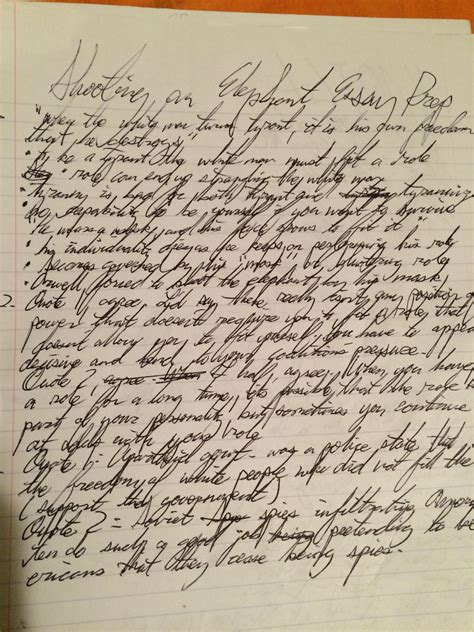 Shooting an Elephant Essay Prep
"when the white man turns tyrant, it is his own freedom
that he destroys"
• To be a tyrant the white man must fit a role
• role can end up strangling the white man
• Tyranny is bad for both tyrant and tyrannized
be capability to be yourself if you want to survive
"He wears a mask, and his face grows to fit it"
• his individuality as he keeps on performing his role
• Becomes covered by his "mask" or role
• Orwell forced to shoot the elephant by his mask
2. Quote 1 agree. there really isn't any position of
power that doesn't require you to a role that
doesn't allow you to be yourself. you have to appear
decisive and pressure.
Quote 2, agree I half agree. When you have
a role for a long time, it's possible that the role
part of your personality but sometimes you continue
at odds with your role
Quote 1: Apartheid govt - was a police state that
the freedom of white people who did not fill the
(support the government)
Quote 2 = Soviet spies infiltrating
ten do such a good job being pretending to be
ericans that they cease being spies.